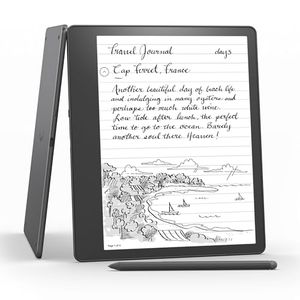 Travel Journal days
Cap Ferret, France
Another beautiful day of beach life
and indulging in many oysters and
perhaps too much white wine.
Low tide after lunch, the perfect
time to go to the ocean. Barely
another soul there Heaven!
Page 1 of 6